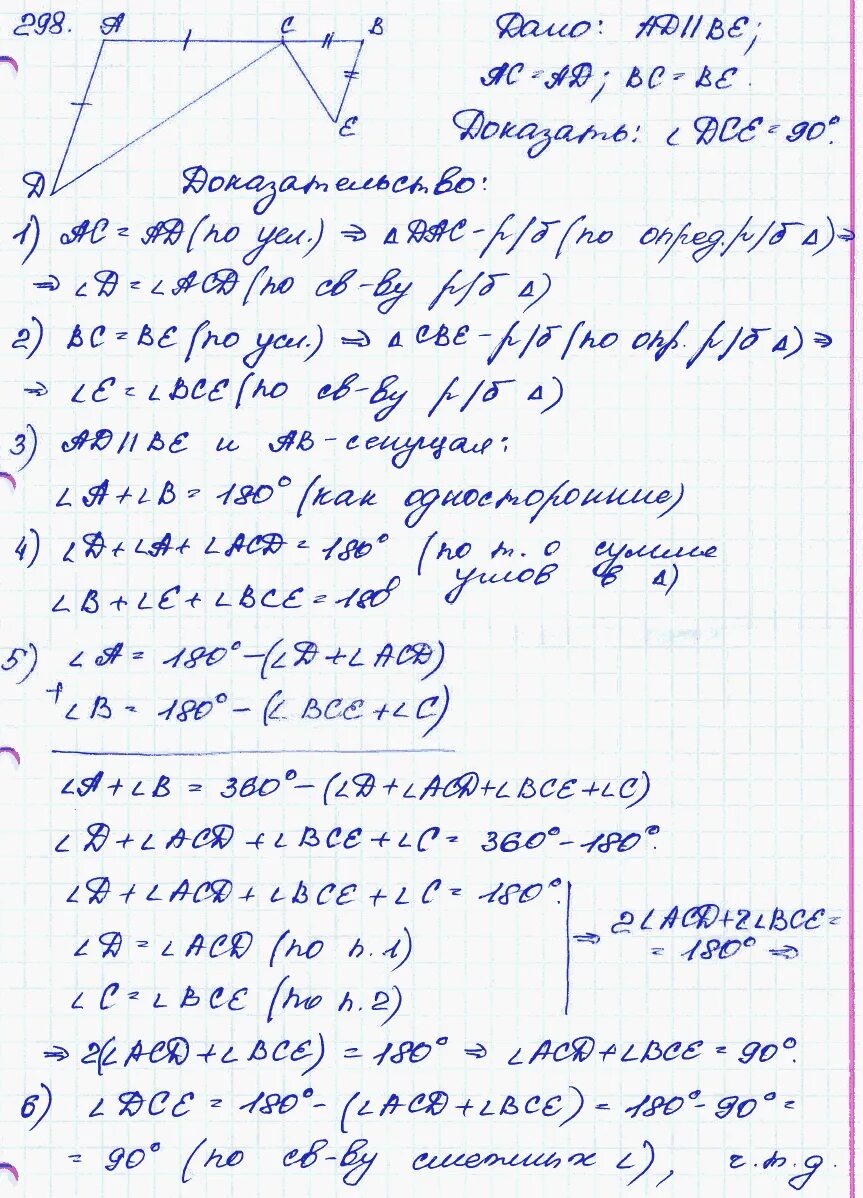 298. A C B Дано: AD||BE;
AC = AD; BC = BE.
E Доказать: ∠DCE = 90°.
D Доказательство:
1) AC = AD (по усл.) ⇒ △DAC - р/б (по опред. р/б △) ⇒
⇒ ∠D = ∠ACD (по св-ву р/б △)
2) BC = BE (по усл.) ⇒ △CBE - р/б (по опр. р/б △) ⇒
⇒ ∠E = ∠BCE (по св-ву р/б △)
3) AD||BE и AB - секущая:
∠A + ∠B = 180° (как односторонние)
4) ∠D + ∠A + ∠ACD = 180° (по т. о сумме
углов в △)
∠B + ∠E + ∠BCE = 180
5) ∠A = 180° - (∠D + ∠ACD)
+ ∠B = 180° - (∠BCE + ∠C)
∠A + ∠B = 360° - (∠D + ∠ACD + ∠BCE + ∠C)
∠D + ∠ACD + ∠BCE + ∠C = 360° - 180°.
∠D + ∠ACD + ∠BCE + ∠C = 180°.
∠D = ∠ACD (по п. 1)
∠C = ∠BCE (по п. 2)
⇒ 2∠ACD + 2∠BCE =
= 180° ⇒
⇒ 2(∠ACD + ∠BCE) = 180° ⇒ ∠ACD + ∠BCE = 90°.
6) ∠DCE = 180° - (∠ACD + ∠BCE) = 180° - 90° =
= 90° (по св-ву смежных ∠), ч.т.д.